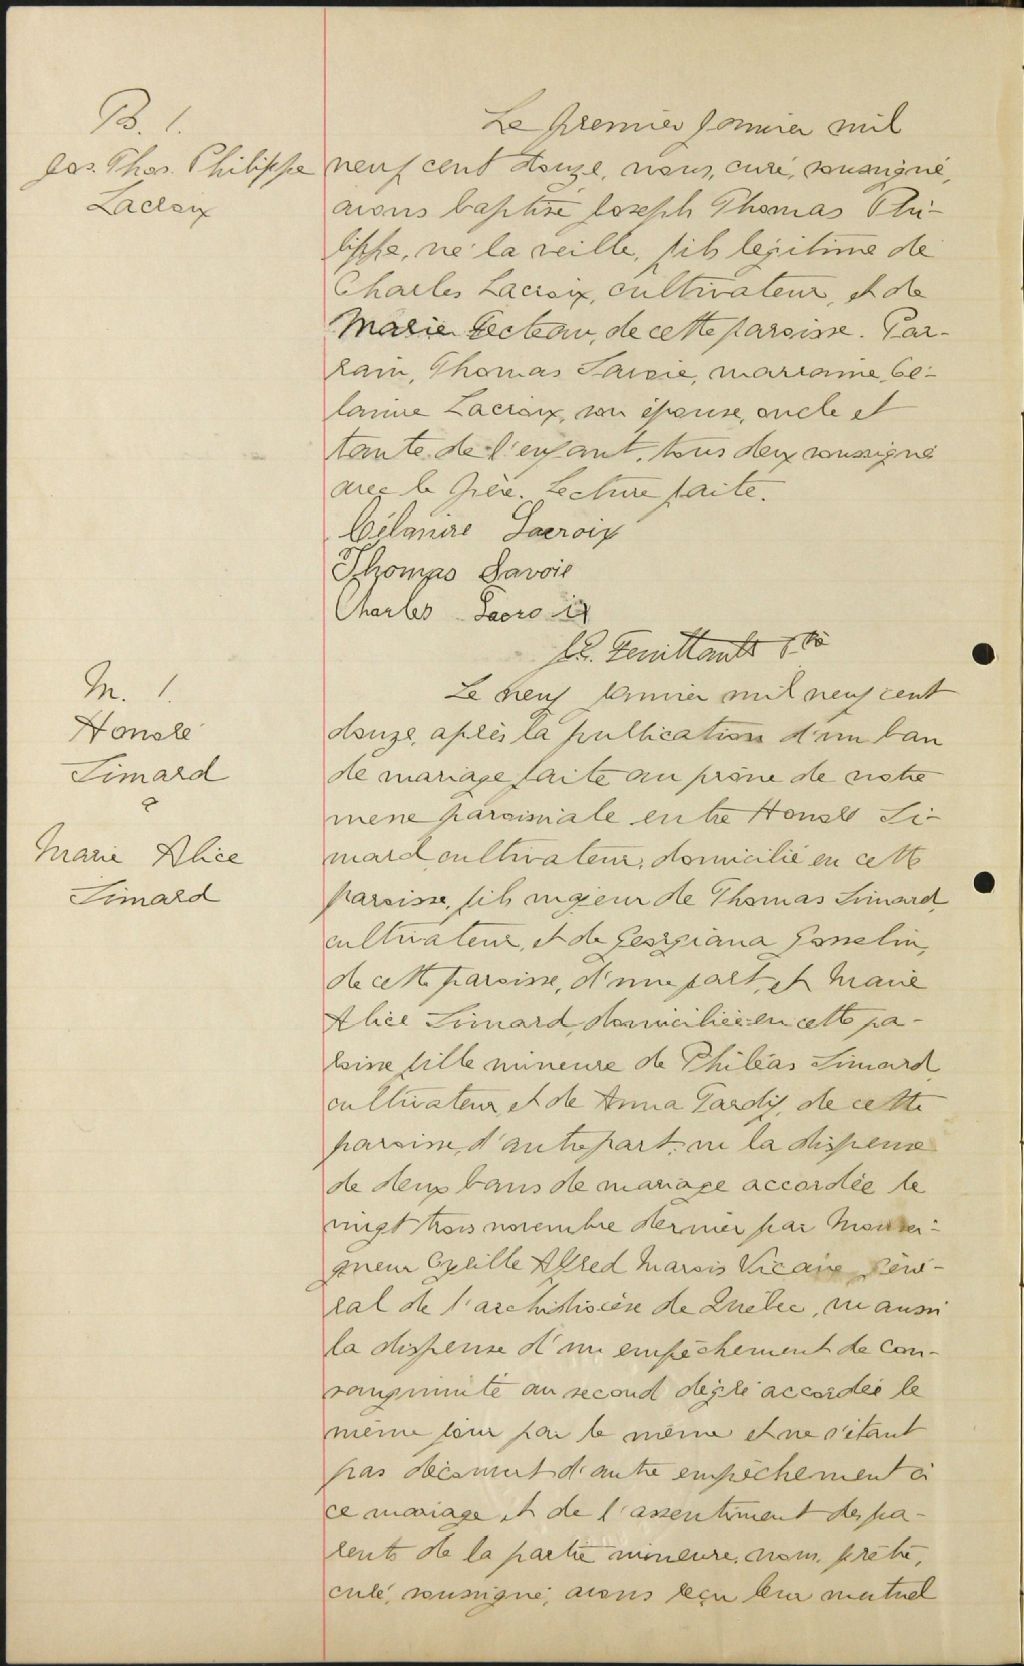 B. 1.
Jos. Thos. Philippe
Lacroix
Le premier janvier mil
neuf cent douze, nous, curé, soussigné,
avons baptisé Joseph Thomas Phi-
lippe, né la veille, fils légitime de
Charles Lacroix, cultivateur, et de
Marie Fecteau, de cette paroisse. Par-
rain, Thomas Savoie, marraine, Cé-
lanire Lacroix, son épouse, oncle et
tante de l'enfant, tous deux soussignés
avec le père. Lecture faite.
Célanire Lacroix
Thomas Savoie
Charles Lacroix
J.E. Feuiltault Ptre
M. 1.
Honoré
Simard
&
Marie Alice
Simard
Le neuf janvier mil neuf cent
douze, après la publication d'un ban
de mariage faite au prône de notre
messe paroissiale entre Honoré Si-
mard, cultivateur, domicilié en cette
paroisse, fils majeur de Thomas Simard,
cultivateur, et de Georgiana Gosselin,
de cette paroisse, d'une part, et Marie
Alice Simard, domiciliée en cette pa-
roisse fille mineure de Philéas Simard,
cultivateur, et de Anna Tardif, de cette
paroisse, d'autre part; vu la dispense
de deux bans de mariage accordée le
vingt trois novembre dernier par Monsei-
gneur Cyrille Alfred Marois Vicaire Géné-
ral de l'archidiocèse de Québec, vu aussi
la dispense d'un empêchement de con-
sanguinité au second degré accordée le
même jour par le même et ne s'étant
pas découvert d'autre empêchement à
ce mariage et de l'assentiment des pa-
rents de la partie mineure, nous, prêtre,
curé, soussigné, avons reçu leur mutuel